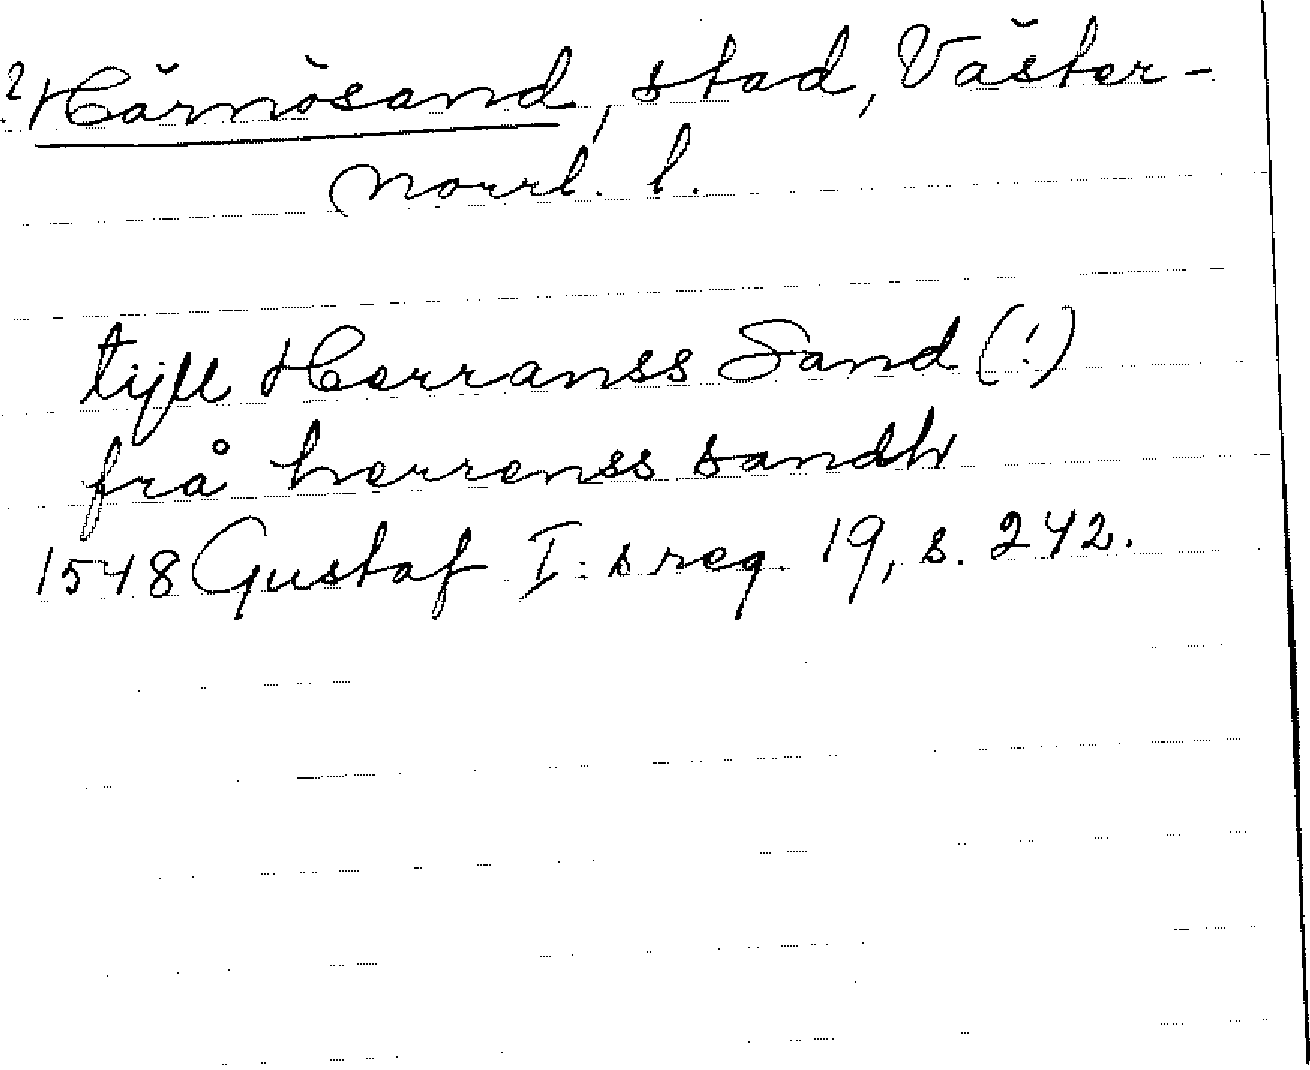 ? Härnösand, stad, Väster-
norrl. l.
tijll Herranss Sand (!)
frå herrenss sandh
1548 Gustaf I:s reg. 19, s. 242.